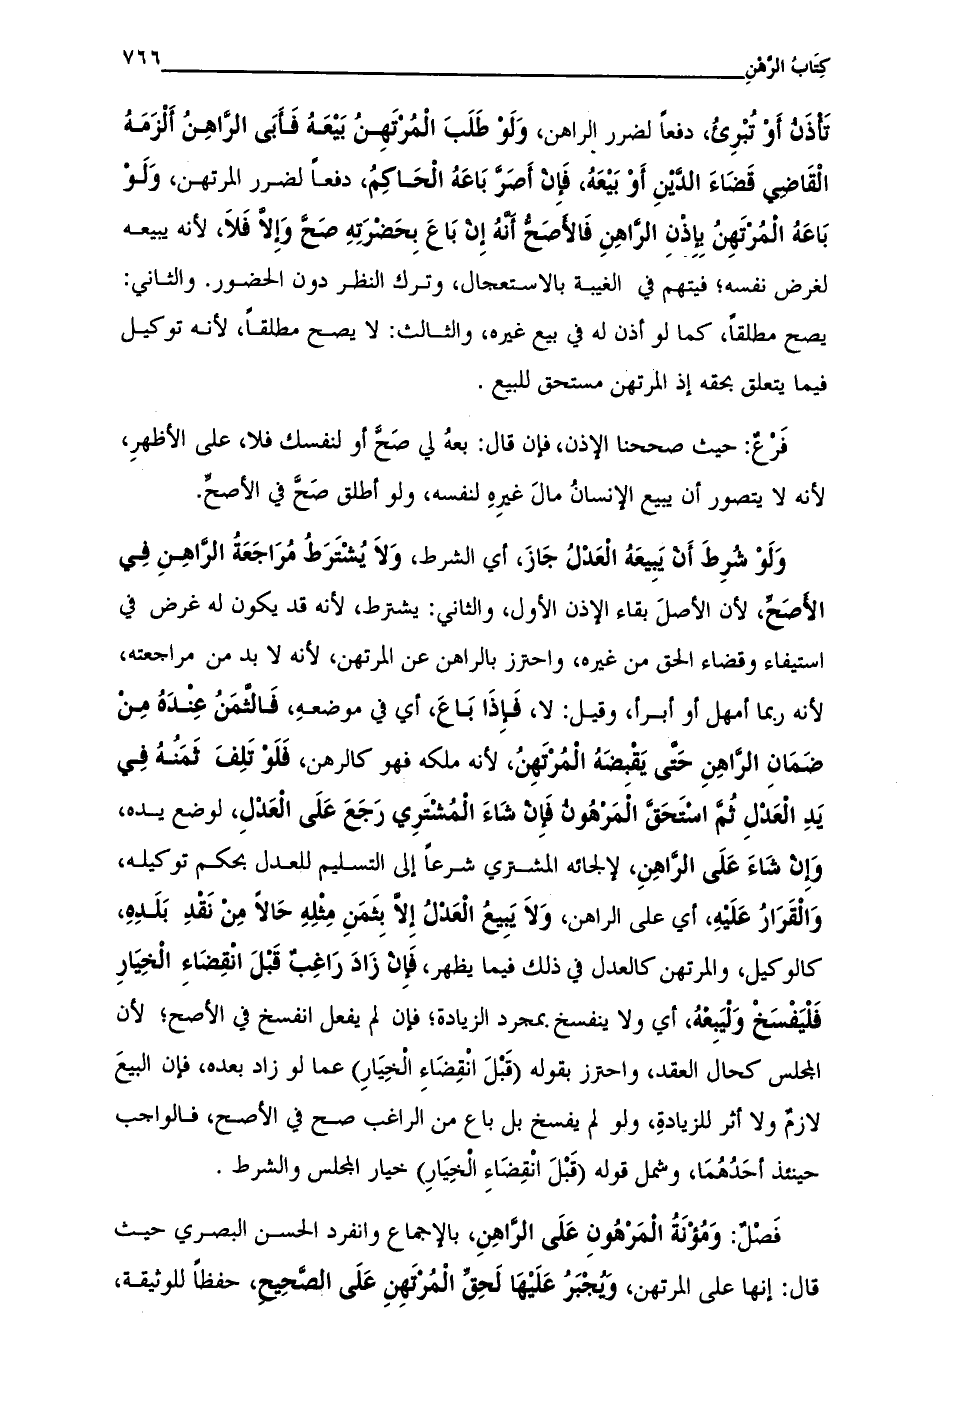 كِتَابُ الرَّهْنِ ٧٦٦
تَأْذَنُ أَوْ تُبْرِئُ، دفعاً لضرر الراهن، وَلَوْ طَلَبَ الْمُرْتَهِنُ بَيْعَهُ فَأَبَى الرَّاهِنُ أَلْزَمَهُ
الْقَاضِي قَضَاءَ الدَّيْنِ أَوْ بَيْعَهُ، فَإِنْ أَصَرَّ بَاعَهُ الْحَاكِمُ، دفعاً لضرر المرتهن، وَلَوْ
بَاعَهُ الْمُرْتَهِنُ بِإِذْنِ الرَّاهِنِ فَالأَصَحُّ أَنَّهُ إِنْ بَاعَ بِحَضْرَتِهِ صَحَّ وَإِلاَّ فَلاَ، لأنه يبيعه
لغرض نفسه؛ فيتهم في الغيبة بالاستعجال، وترك النظر دون الحضور. والثاني:
يصح مطلقاً، كما لو أذن له في بيع غيره، والثالث: لا يصح مطلقاً، لأنه توكيل
فيما يتعلق بحقه إذ المرتهن مستحق للبيع .
فَرْعٌ: حيث صححنا الإذن، فإن قال: بعهُ لي صَحَّ أو لنفسك فلا، على الأظهرِ،
لأنه لا يتصور أن يبيع الإنسانُ مالَ غيرِهِ لنفسه، ولو أطلق صَحَّ في الأصحِّ.
وَلَوْ شُرِطَ أَنْ يَبِيعَهُ الْعَدْلُ جَازَ، أي الشرط، وَلاَ يُشْتَرَطُ مُرَاجَعَةُ الرَّاهِنِ فِي
الأَصَحِّ، لأن الأصلَ بقاء الإذن الأول، والثاني: يشترط، لأنه قد يكون له غرض في
استيفاء وقضاء الحق من غيره، واحترز بالراهن عن المرتهن، لأنه لا بد من مراجعته،
لأنه ربما أمهل أو أبرأ، وقيل: لا، فَإِذَا بَاعَ، أي في موضعهِ، فَالثَّمَنُ عِنْدَهُ مِنْ
ضَمَانِ الرَّاهِنِ حَتَّى يَقْبِضَهُ الْمُرْتَهِنُ، لأنه ملكه فهو كالرهن، فَلَوْ تَلِفَ ثَمَنُهُ فِي
يَدِ الْعَدْلِ ثُمَّ اسْتَحَقَّ الْمَرْهُونُ فَإِنْ شَاءَ الْمُشْتَرِي رَجَعَ عَلَى الْعَدْلِ، لوضع يده،
وَإِنْ شَاءَ عَلَى الرَّاهِنِ، لإلجائه المشتري شرعاً إلى التسليم للعدل بحكم توكيله،
وَالْقَرَارُ عَلَيْهِ، أي على الراهن، وَلاَ يَبِيعُ الْعَدْلُ إِلاَّ بِثَمَنِ مِثْلِهِ حَالاً مِنْ نَقْدِ بَلَدِهِ،
كالوكيل، والمرتهن كالعدل في ذلك فيما يظهر، فَإِنْ زَادَ رَاغِبٌ قَبْلَ انْقِضَاءِ الْخِيَارِ
فَلْيَفْسَخْ وَلْيَبِعْهُ، أي ولا ينفسخ بمجرد الزيادة؛ فإن لم يفعل انفسخ في الأصح؛ لأن
المجلس كحال العقد، واحترز بقوله (قَبْلَ انْقِضَاءِ الْخِيَارِ) عما لو زاد بعده، فإن البيعَ
لازمٌ ولا أثر للزيادةِ، ولو لم يفسخ بل باع من الراغب صح في الأصح، فالواجب
حينئذ أَحَدُهُمَا، وشمل قوله (قَبْلَ انْقِضَاءِ الْخِيَارِ) خيار المجلس والشرط .
فَصْلٌ: وَمُؤْنَةُ الْمَرْهُونِ عَلَى الرَّاهِنِ، بالإجماع وانفرد الحسن البصري حيث
قال: إنها على المرتهن، وَيُجْبَرُ عَلَيْهَا لَحِقِّ الْمُرْتَهِنِ عَلَى الصَّحِيحِ، حفظاً للوثيقة،